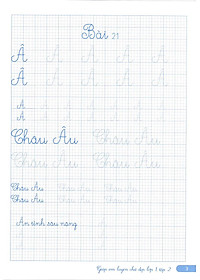 Bài 21
Â Â Â Â Â Â
Â Â Â Â Â Â
Â Â Â Â Â Â
Â Â Â Â Â Â
Châu Âu Châu Âu
Châu Âu Châu Âu
Châu Âu Châu Âu Châu Âu
Châu Âu Châu Âu Châu Âu
Ân tình sâu nặng
Giúp em luyện chữ đẹp lớp 1 tập 2